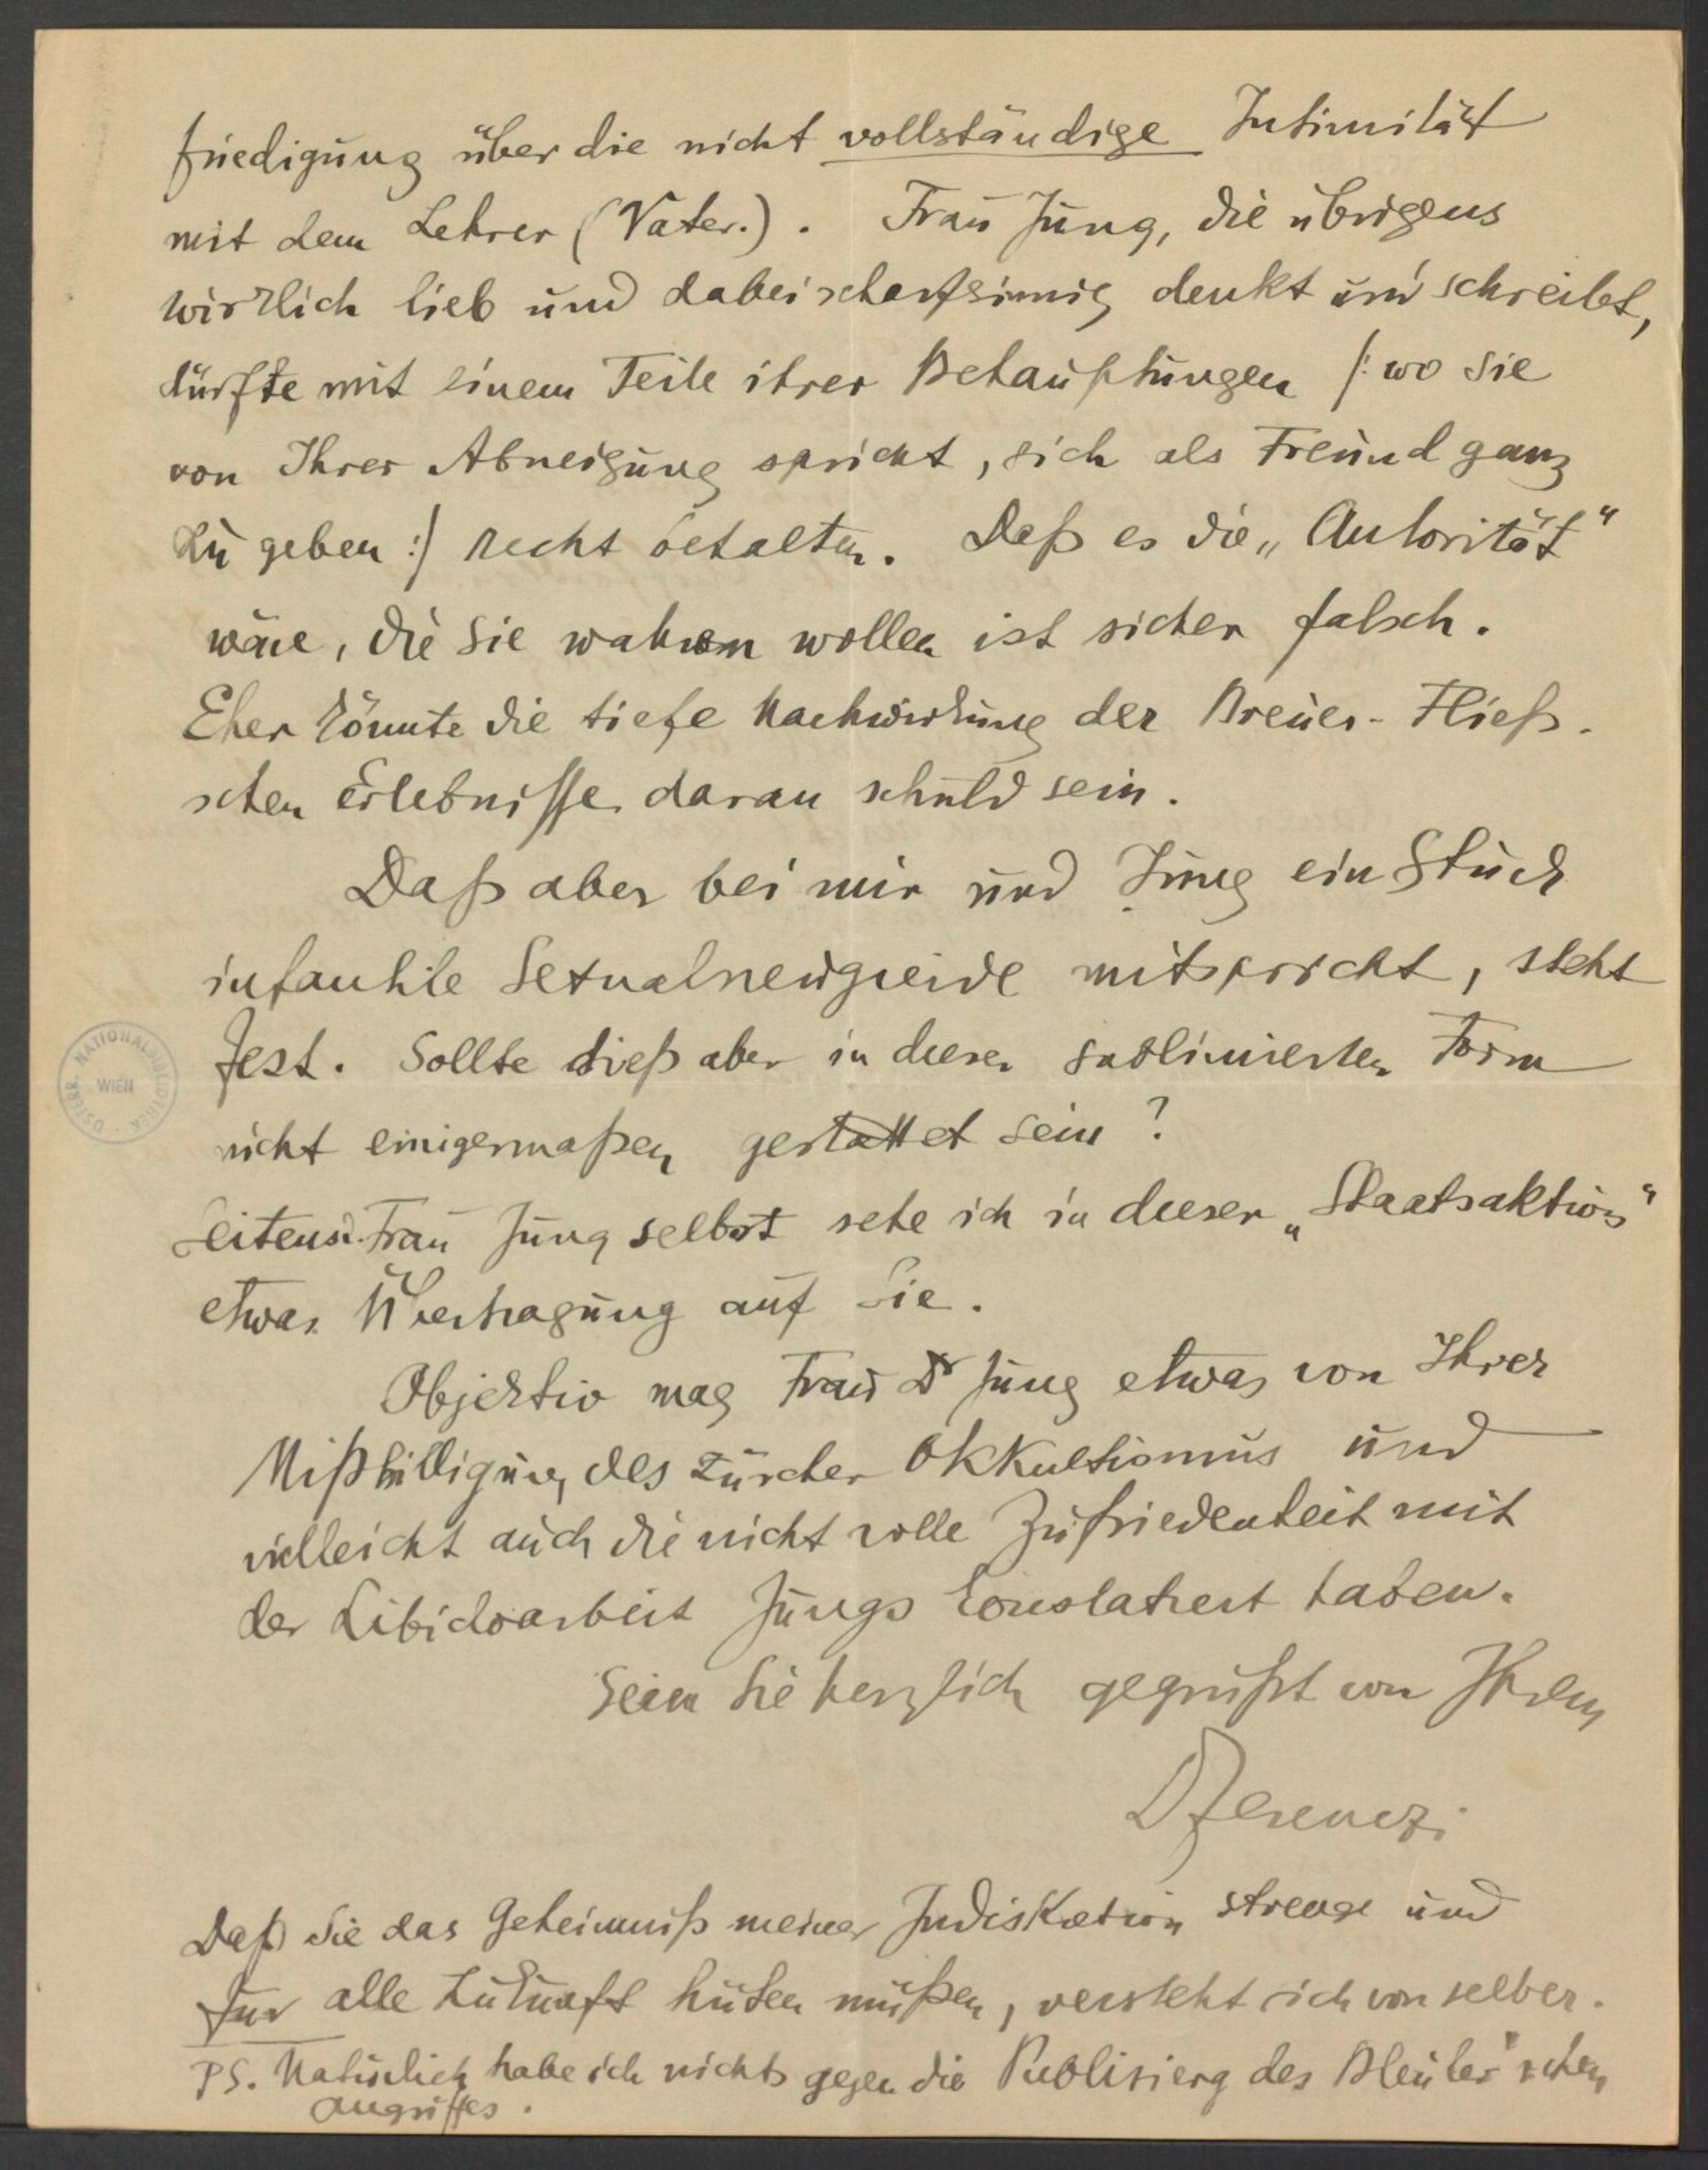 friedigung über die nicht vollständige Intimität
mit dem Lehrer (Vater.). Frau Jung, die übrigens
wirklich lieb und dabei scharfsinnig denkt und schreibt,
dürfte mit einem Teile ihrer Behauptungen /: wo sie
von Ihrer Abneigung spricht, sich als Freund ganz
zu geben :/ recht behalten. Daß es die „Autorität“
wäre, die Sie wahren wollen ist sicher falsch.
Eher könnte die tiefe Nachwirkung der Breuer-Fließ-
schen Erlebnisse daran schuld sein.
Daß aber bei mir und Jung ein Stück
infantile Sexualneugierde mitspricht, steht
fest. Sollte dieß aber in dieser sublimierten Form
nicht einigermaßen gestattet sein?
Seitens d. Frau Jung selbst sehe ich in dieser „Staatsaktion“
etwas Übertragung auf Sie.
Objektiv mag Frau Dr Jung etwas von Ihrer
Mißbilligung des Zürcher Okkultismus und
vielleicht auch die nicht volle Zufriedenheit mit
der Libidoarbeit Jungs konstatiert haben.
Seien Sie herzlich gegrüßt von Ihrem
DFerenczi
Daß Sie das Geheimniß meiner Indiskretion strenge und
für alle Zukunft hüten müßen, versteht sich von selber.
PS. Natürlich habe ich nichts gegen die Publizierg des Bleuler'schen
Angriffes.
ÖSTERR. NATIONALBIBLIOTHEK
WIEN